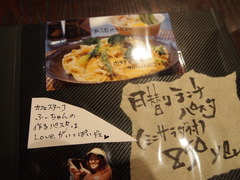 カフェスタッフ
ふーちゃんの
作るパスタは
Loveがいっぱいデス♥
日替りランチ
パスタ
(ミニサラダ付)
850yen